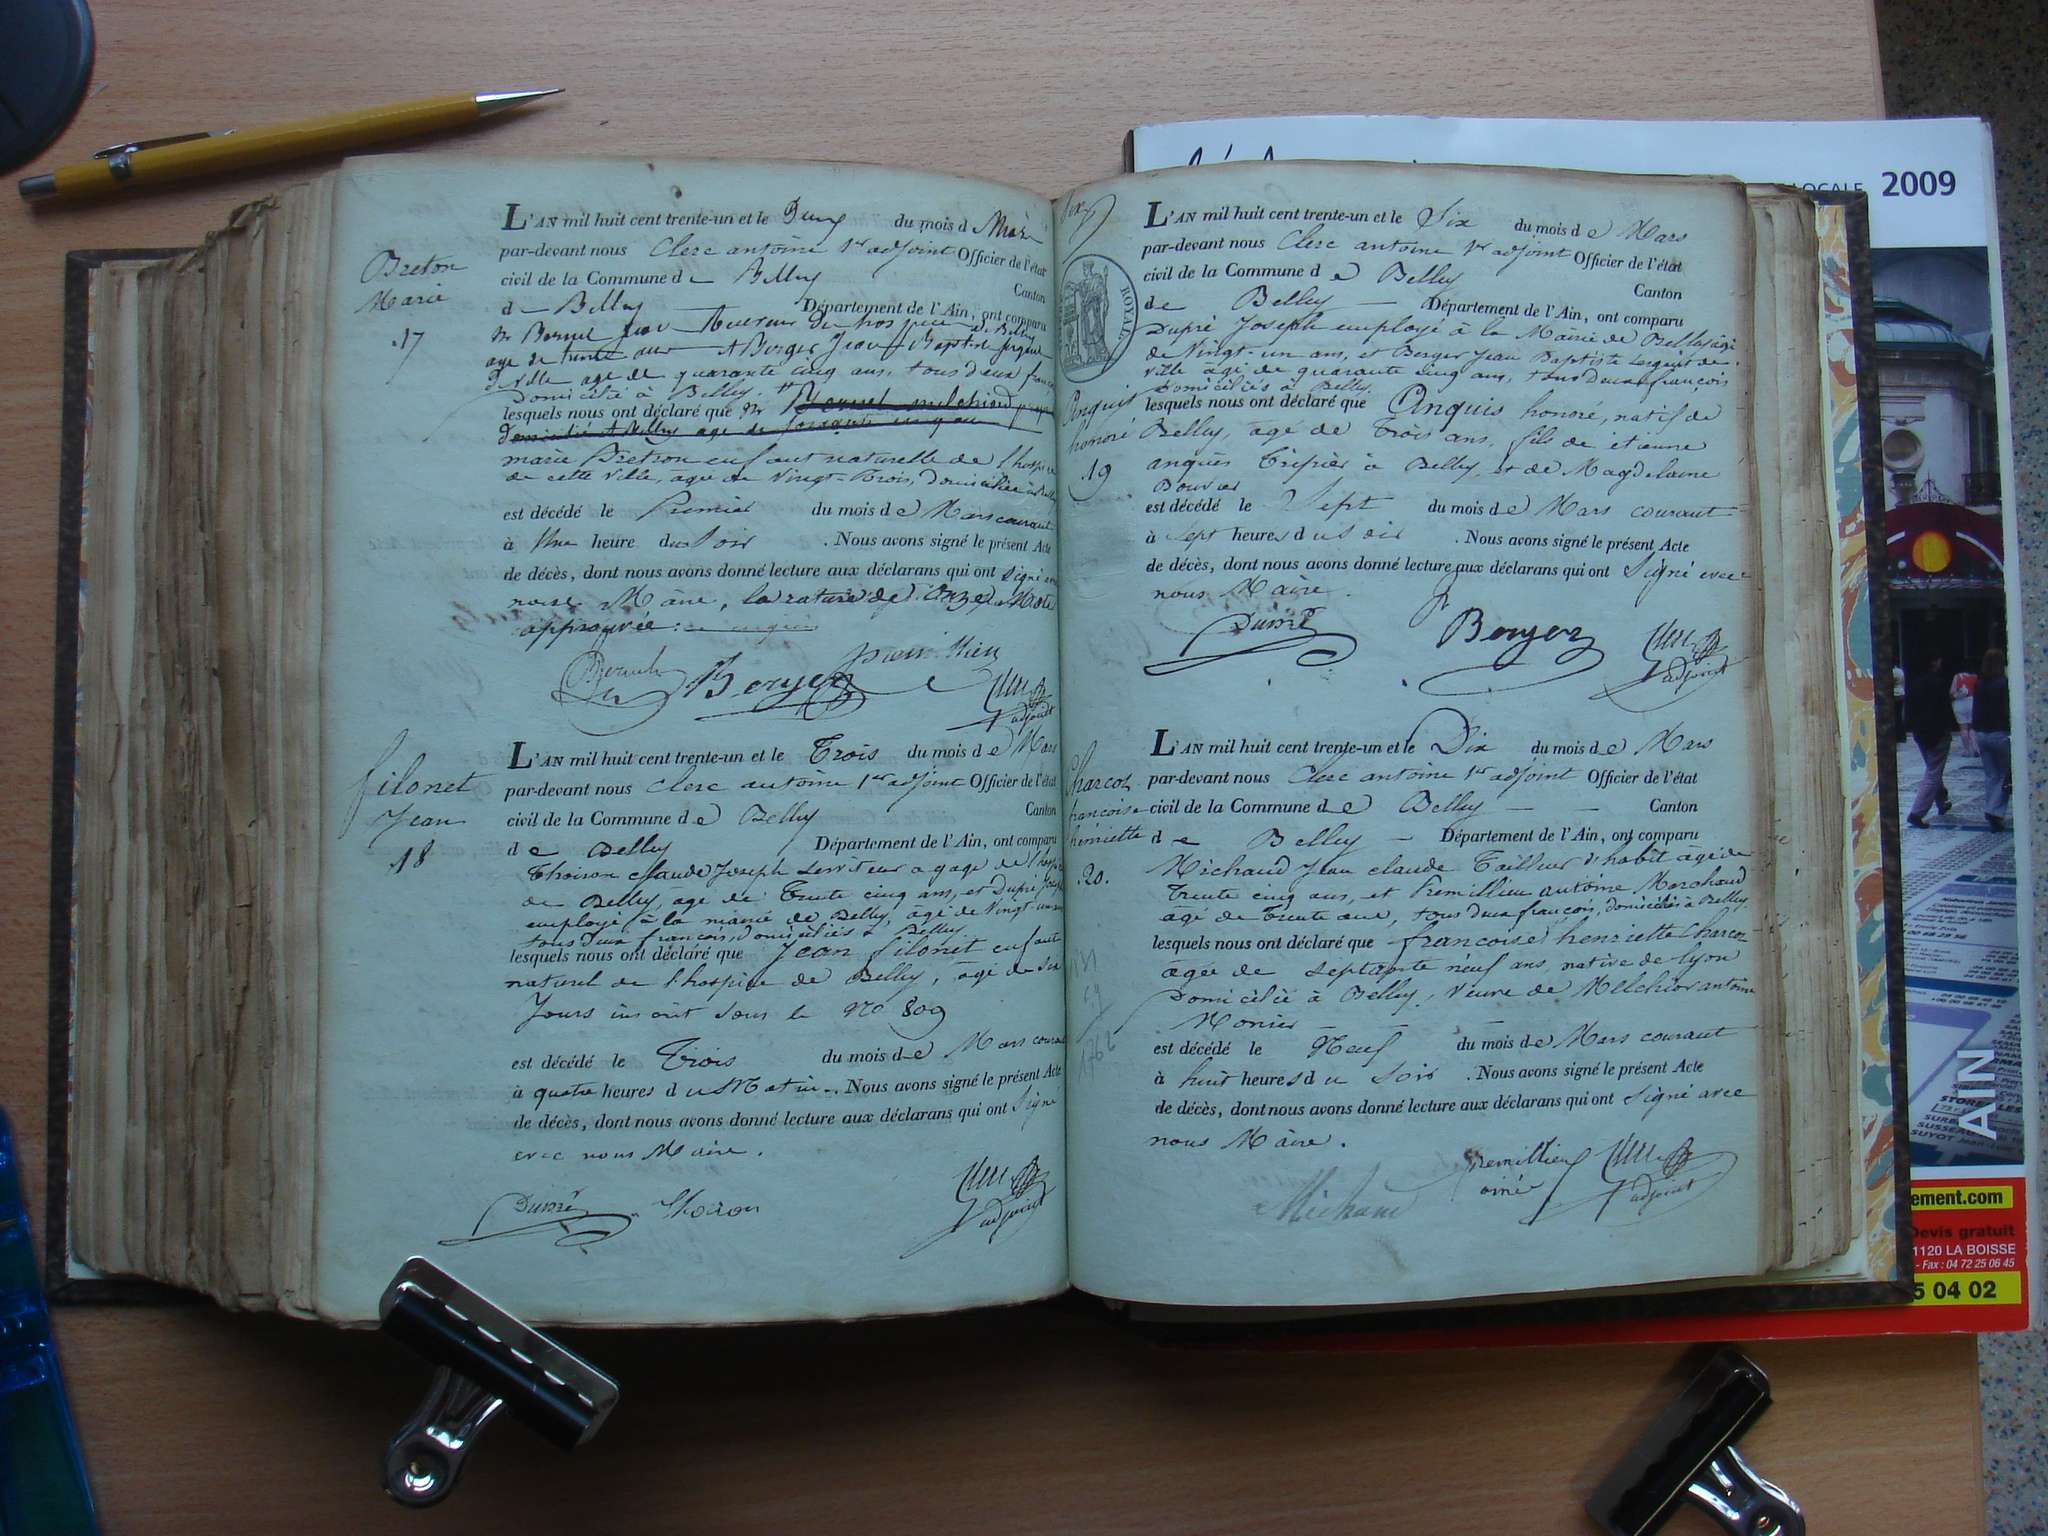 Breton
Marie
17
L'AN mil huit cent trente-un et le Deux du mois d Mars
par-devant nous Clerc antoine 1er adjoint Officier de l'état
civil de la Commune de Belley Canton
de Belley Département de l'Ain, ont comparu
age de trente Berger Jean Baptiste sergent
de Ville age de quarante cinq ans, tous deux françois
Domicilié à Belley.
lesquels nous ont déclaré que
marie Bretron enfant naturelle de l'hospice
de cette Ville, agée de Vingt-Trois, Domiciliée à Belley
est décédé le Premier du mois de Mars courant
à Une heure du Soir . Nous avons signé le présent Acte
de décès, dont nous avons donné lecture aux déclarans qui ont signé avec
nous Maire, la rature de Onze Mots
approuvée :
Berger
adjoint
filonet
Jean
18
L'AN mil huit cent trente-un et le Trois du mois de Mars
par-devant nous Clerc antoine 1er adjoint Officier de l'état
civil de la Commune de Belley Canton
de Belley Département de l'Ain, ont comparu
Thoison claude Joseph Serviteur a gage de l'hospice
de Belley, age de Trente cinq ans, et Dupré Joseph
employé à la mairie de Belley, agé de Vingt-un ans
tous deux françois, domiciliés à Belley
lesquels nous ont déclaré que Jean filonet enfant
naturel de l'hospice de Belley, age de six
Jours inscrit sous le No 809
est décédé le Trois du mois de Mars courant
à quatre heures du Matin. Nous avons signé le présent Acte
de décès, dont nous avons donné lecture aux déclarans qui ont Signé
avec nous Maire.
Dupré Thoison
adjoint
ROYALE
Anquis
honoré
19
L'AN mil huit cent trente-un et le Six du mois de Mars
par-devant nous Clerc antoine 1er adjoint Officier de l'état
civil de la Commune de Belley Canton
de Belley Département de l'Ain, ont comparu
Dupré Joseph employé à la Mairie de Belley agé
de Vingt-un ans, et Berger Jean Baptiste sergent de
ville âgé de quarante cinq ans, tous deux françois
Domiciliés à Belley
lesquels nous ont déclaré que Anquis honoré, natif de
Belley, agé de Trois ans, fils de etienne
anquis à Belley, et de Magdelaine
Bouvier
est décédé le Sept du mois de Mars courant
à sept heures du soir . Nous avons signé le présent Acte
de décès, dont nous avons donné lecture aux déclarans qui ont Signé avec
nous Maire.
Dupré Berger
adjoint
Charcot
françoise
henriette
20.
L'AN mil huit cent trente-un et le Dix du mois de Mars
par-devant nous Clerc antoine 1er adjoint Officier de l'état
civil de la Commune de Belley Canton
de Belley Département de l'Ain, ont comparu
Michaud Jean claude Tailleur d'habit âgé de
Trente cinq ans, et Premillieu antoine Marchand
agé de Trente ans, tous deux françois, domiciliés à Belley
lesquels nous ont déclaré que françoise henriette Charcot
agée de septante neuf ans native de lyon
Domiciliée à Belley, Veuve de Melchior antoine
Monier
est décédé le Neuf du mois de Mars courant
à huit heures du Soir . Nous avons signé le présent Acte
de décès, dont nous avons donné lecture aux déclarans qui ont Signé avec
nous Maire.
Premillieu
ainé
Michaud
adjoint
LOCALE 2009
AIN
ement.com
Devis gratuit
1120 LA BOISSE
- Fax : 04 72 25 06 45
5 04 02